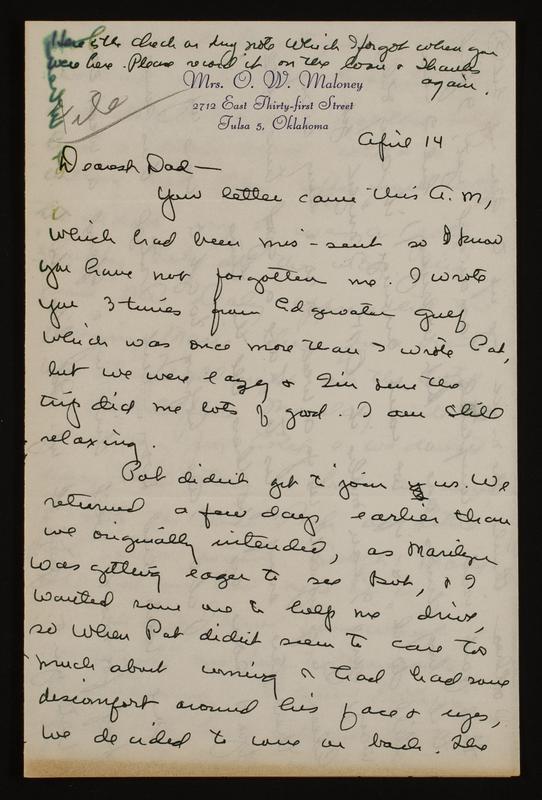 Here's the check on my note which I forgot when you
were here. Please record it on the loan & Thanks
again.
File
Mrs. O. W. Maloney
2712 East Thirty-first Street
Tulsa 5, Oklahoma
April 14
Dearest Dad—
Your letter came this A.M,
which had been mis-sent so I know
you have not forgotten me. I wrote
you 3 times from Edgewater Gulf
which was once more than I wrote Pat,
but we were lazy & I'm sure the
trip did me lots of good. I am still
relaxing.
Pat didn't get to join us. We
returned a few days earlier than
we originally intended, as Marilyn
was getting eager to see Bob, & I
wanted some one to help me drive,
so when Pat didn't seem to care too
much about coming & had had some
discomfort around his face & eyes,
we decided to come on back. The